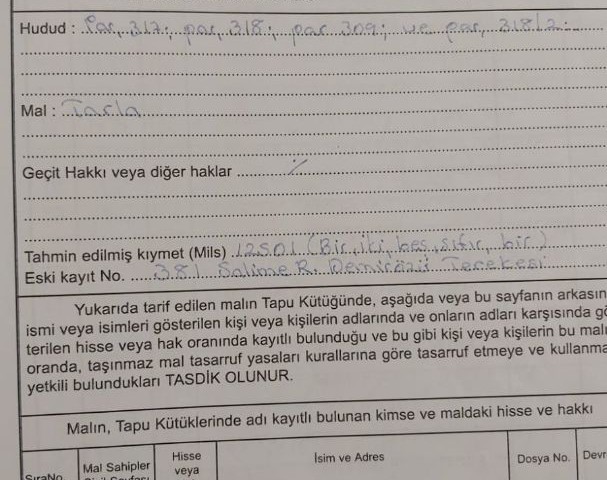 Hudud : Par, 317; par, 318; par 309; ve par, 318/2;
Mal : Tarla
Geçit Hakkı veya diğer haklar
Tahmin edilmiş kıymet (Mils) 12501 (Bir, iki, beş, sıfır, bir)
Eski kayıt No. 381 Salime R. Demirözü Terekesi
Yukarıda tarif edilen malın Tapu Kütüğünde, aşağıda veya bu sayfanın arkasın
ismi veya isimleri gösterilen kişi veya kişilerin adlarında ve onların adları karşısında gö
terilen hisse veya hak oranında kayıtlı bulunduğu ve bu gibi kişi veya kişilerin bu malı
oranda, taşınmaz mal tasarruf yasaları kurallarına göre tasarruf etmeye ve kullanma
yetkili bulundukları TASDİK OLUNUR.
Malın, Tapu Kütüklerinde adı kayıtlı bulunan kimse ve maldaki hisse ve hakkı
SıraNo
Mal Sahipler
Hisse
veya
İsim ve Adres
Dosya No.
Devr